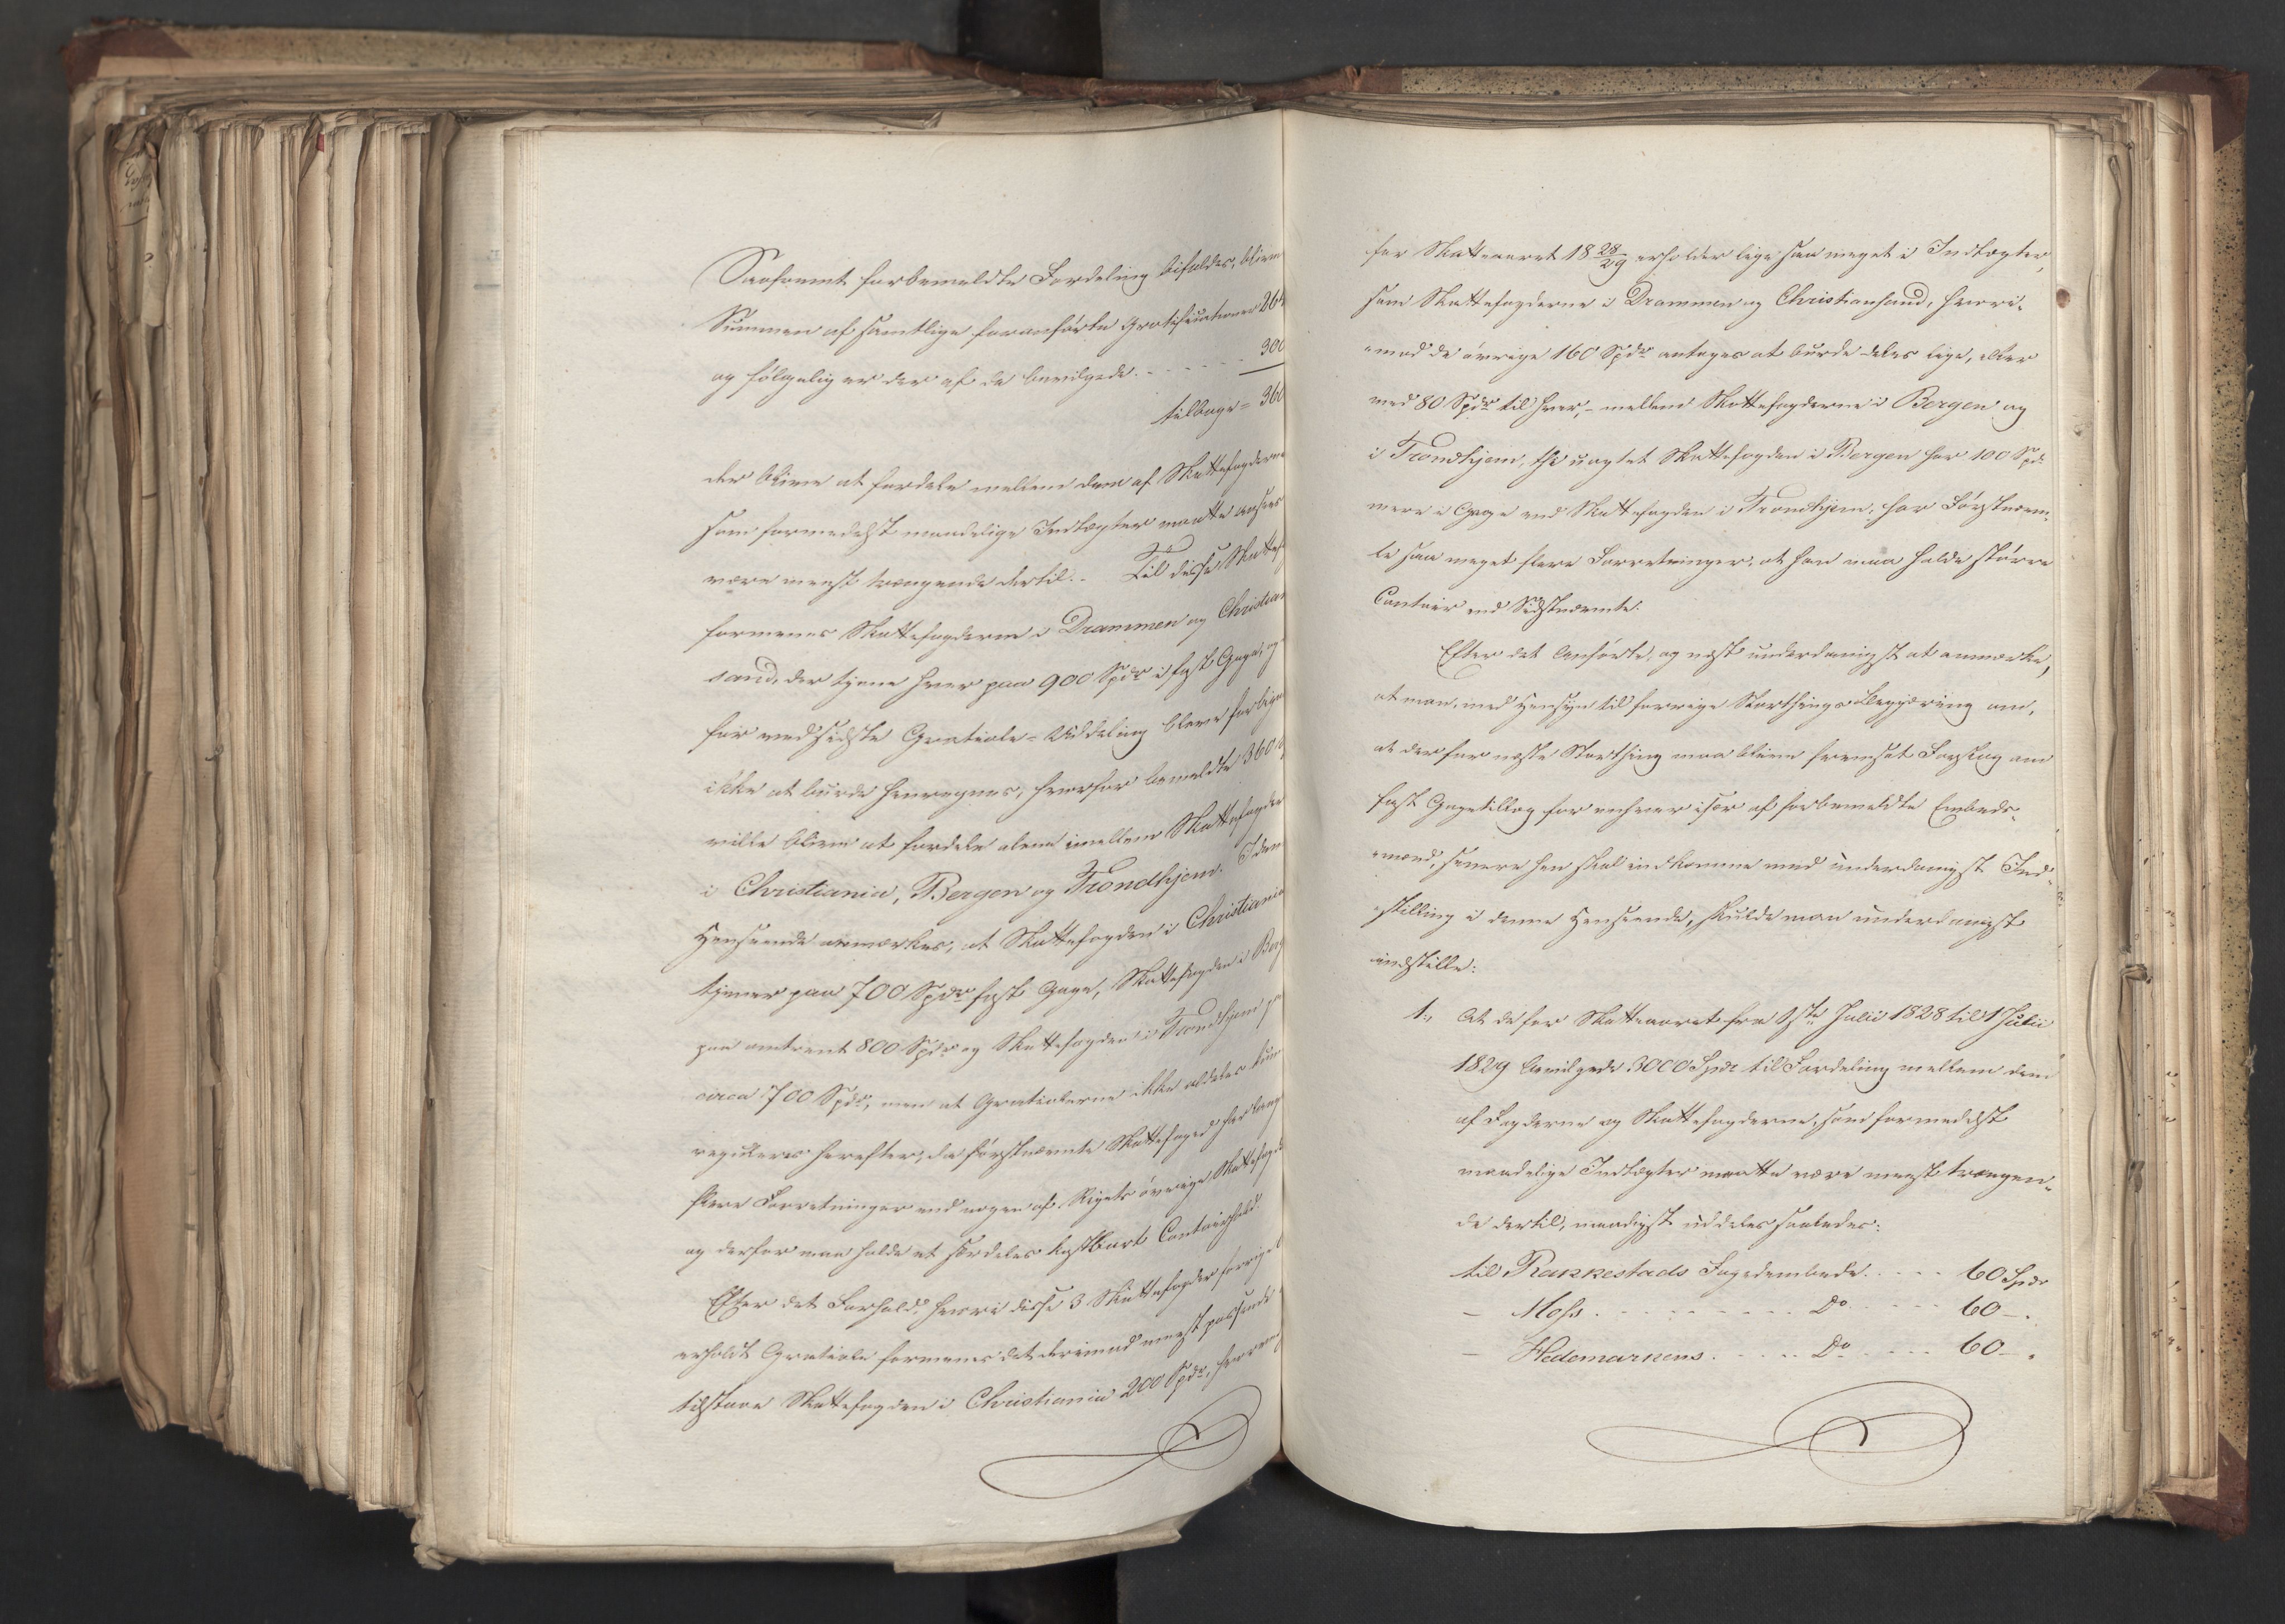 Saafremt forbemeldte Fordeling bifaldes, bliver
Summen af samtlige foranførte Gratificationer 264
og følgelig er der af de bevilgede - - - - - 300
tilbage = 360
der blive at fordele mellem dem af Skattefogderne
som formedelst maadelige Indtægter maatte ansees
være meest trængende dertil. - Til disse Skattef
formenes Skattefogderne i Drammen og Christian
sand, der tjene hver paa 900 Spdr i fast Gage, og
før ved sidste Gratiale-Uddeling bleve forbigaa
ikke at burde henregnes, hvorfor bemeldte 360
ville blive at fordele alene imellem Skattefogder
i Christiania, Bergen og Trondhjem. I den
Henseende anmærkes, at Skattefogden i Christiania
tjener paa 700 Spdr fast Gage, Skattefogden i Berg
paa omtrent 800 Spdr og Skattefogden i Trondhjem p
circa 700 Spdr, men at Gratialerne ikke aldeles kun
reguleres herefter, da førstnævnte Skattefoged har lang
flere Forretninger end nogen af Rigets øvrige Skattefogd
og derfor maa holde et særdeles kostbart Contoirhold.
Efter det Forhold, hvori disse 3 Skattefogder forrige
erholdt Gratiale formenes det derimod meest passende
tilstaae Skattefogden i Christiania 200 Spdr, hvorved
for Skatteaaret 18 28/29 erholder lige saa meget i Indtægter,
som Skattefogderne i Drammen og Christiansand, hvori-
-mod de øvrige 160 Spdr antages at burde deles lige, eller
med 80 Spdr til hver, - mellem Skattefogderne i Bergen og
i Trondhjem, thi uagtet Skattefogden i Bergen har 100 Spd
mere i Gage end Skattefogden i Trondhjem, har Førstnævn-
te saa meget flere Forretninger, at han maa holde større
Contoir end Sidstnævnte.
Efter det Anførte, og næst underdanigst at anmærke,
at man, med Hensyn til forrige Storthings Begjæring om,
at der for næste Storthing maa blive fremsat Forslag om
fast Gagetillæg for enhver især af forbemeldte Embeds-
-mænd, senere hen skal indkomme med underdanigst Ind-
-stilling i denne Henseende, skulde man underdanigst
indstille:
1., At de for Skatteaaret fra 1ste Julii 1828 til 1 Julii
1829 bevilgede 3000 Spdr til Fordeling mellem dem
af Fogderne og Skattefogderne, som formedelst
maadelige Indtægter maatte være meest trængen-
de dertil, naadigst uddeles saaledes:
til Rakkestads Fogedembede. - - - 60 Spdr
- Moss. - - - - - - - - Do - - - - 60 - .
- Hedemarkens. - - - - Do - - - - 60 - .